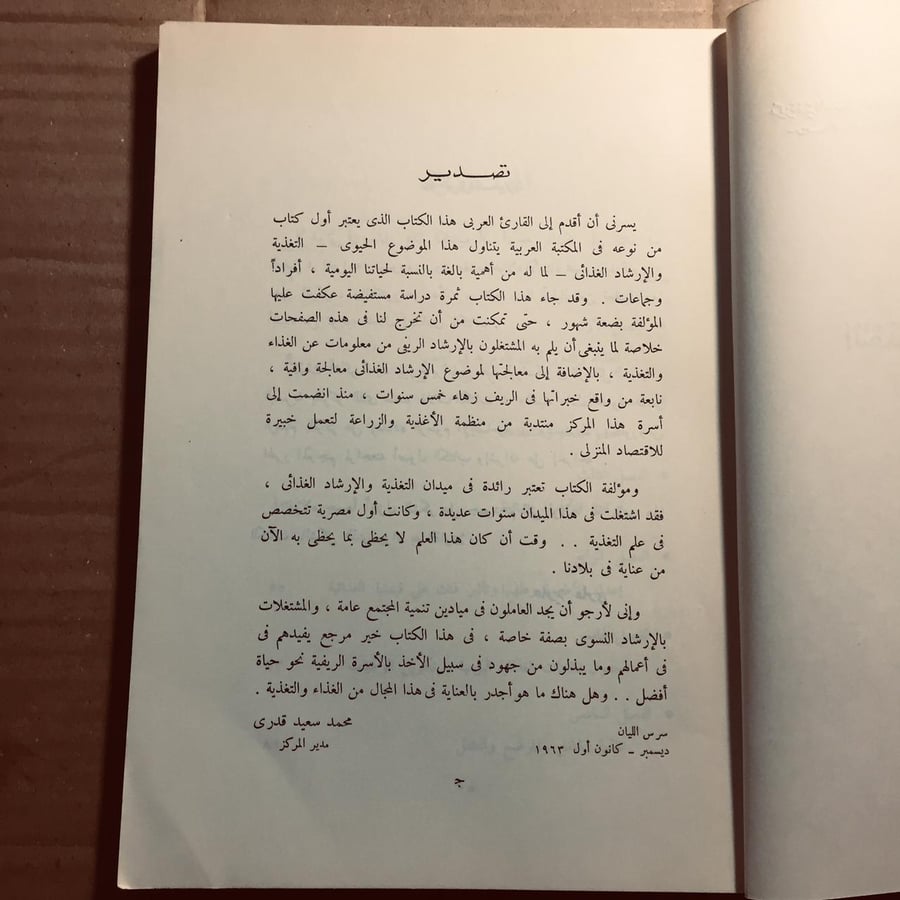 تصدير
يسرنى أن أقدم إلى القارئ العربى هذا الكتاب الذى يعتبر أول كتاب
من نوعه فى المكتبة العربية يتناول هذا الموضوع الحيوى – التغذية
والإرشاد الغذائى – لما له من أهمية بالغة بالنسبة لحياتنا اليومية ، أفراداً
وجماعات . وقد جاء هذا الكتاب ثمرة دراسة مستفيضة عكفت عليها
المؤلفة بضعة شهور ، حتى تمكنت من أن تخرج لنا فى هذه الصفحات
خلاصة لما ينبغى أن يلم به المشتغلون بالإرشاد الريفى من معلومات عن الغذاء
والتغذية ، بالإضافة إلى معالجتها لموضوع الإرشاد الغذائى معالجة وافية ،
نابعة من واقع خبراتها فى الريف زهاء خمس سنوات ، منذ انضمت إلى
أسرة هذا المركز منتدبة من منظمة الأغذية والزراعة لتعمل خبيرة
للاقتصاد المنزلى .
ومؤلفة الكتاب تعتبر رائدة فى ميدان التغذية والإرشاد الغذائى ،
فقد اشتغلت فى هذا الميدان سنوات عديدة ، وكانت أول مصرية تتخصص
فى علم التغذية . . وقت أن كان هذا العلم لا يحظى بما يحظى به الآن
من عناية فى بلادنا .
وإنى لأرجو أن يجد العاملون فى ميادين تنمية المجتمع عامة ، والمشتغلات
بالإرشاد النسوى بصفة خاصة ، فى هذا الكتاب خير مرجع يفيدهم فى
فى أعمالهم وما يبذلون من جهود فى سبيل الأخذ بالأسرة الريفية نحو حياة
أفضل . . وهل هناك ما هو أجدر بالعناية فى هذا المجال من الغذاء والتغذية .
محمد سعيد قدرى
سرس الليان
ديسمبر – كانون أول ١٩٦٣
مدير المركز
ج